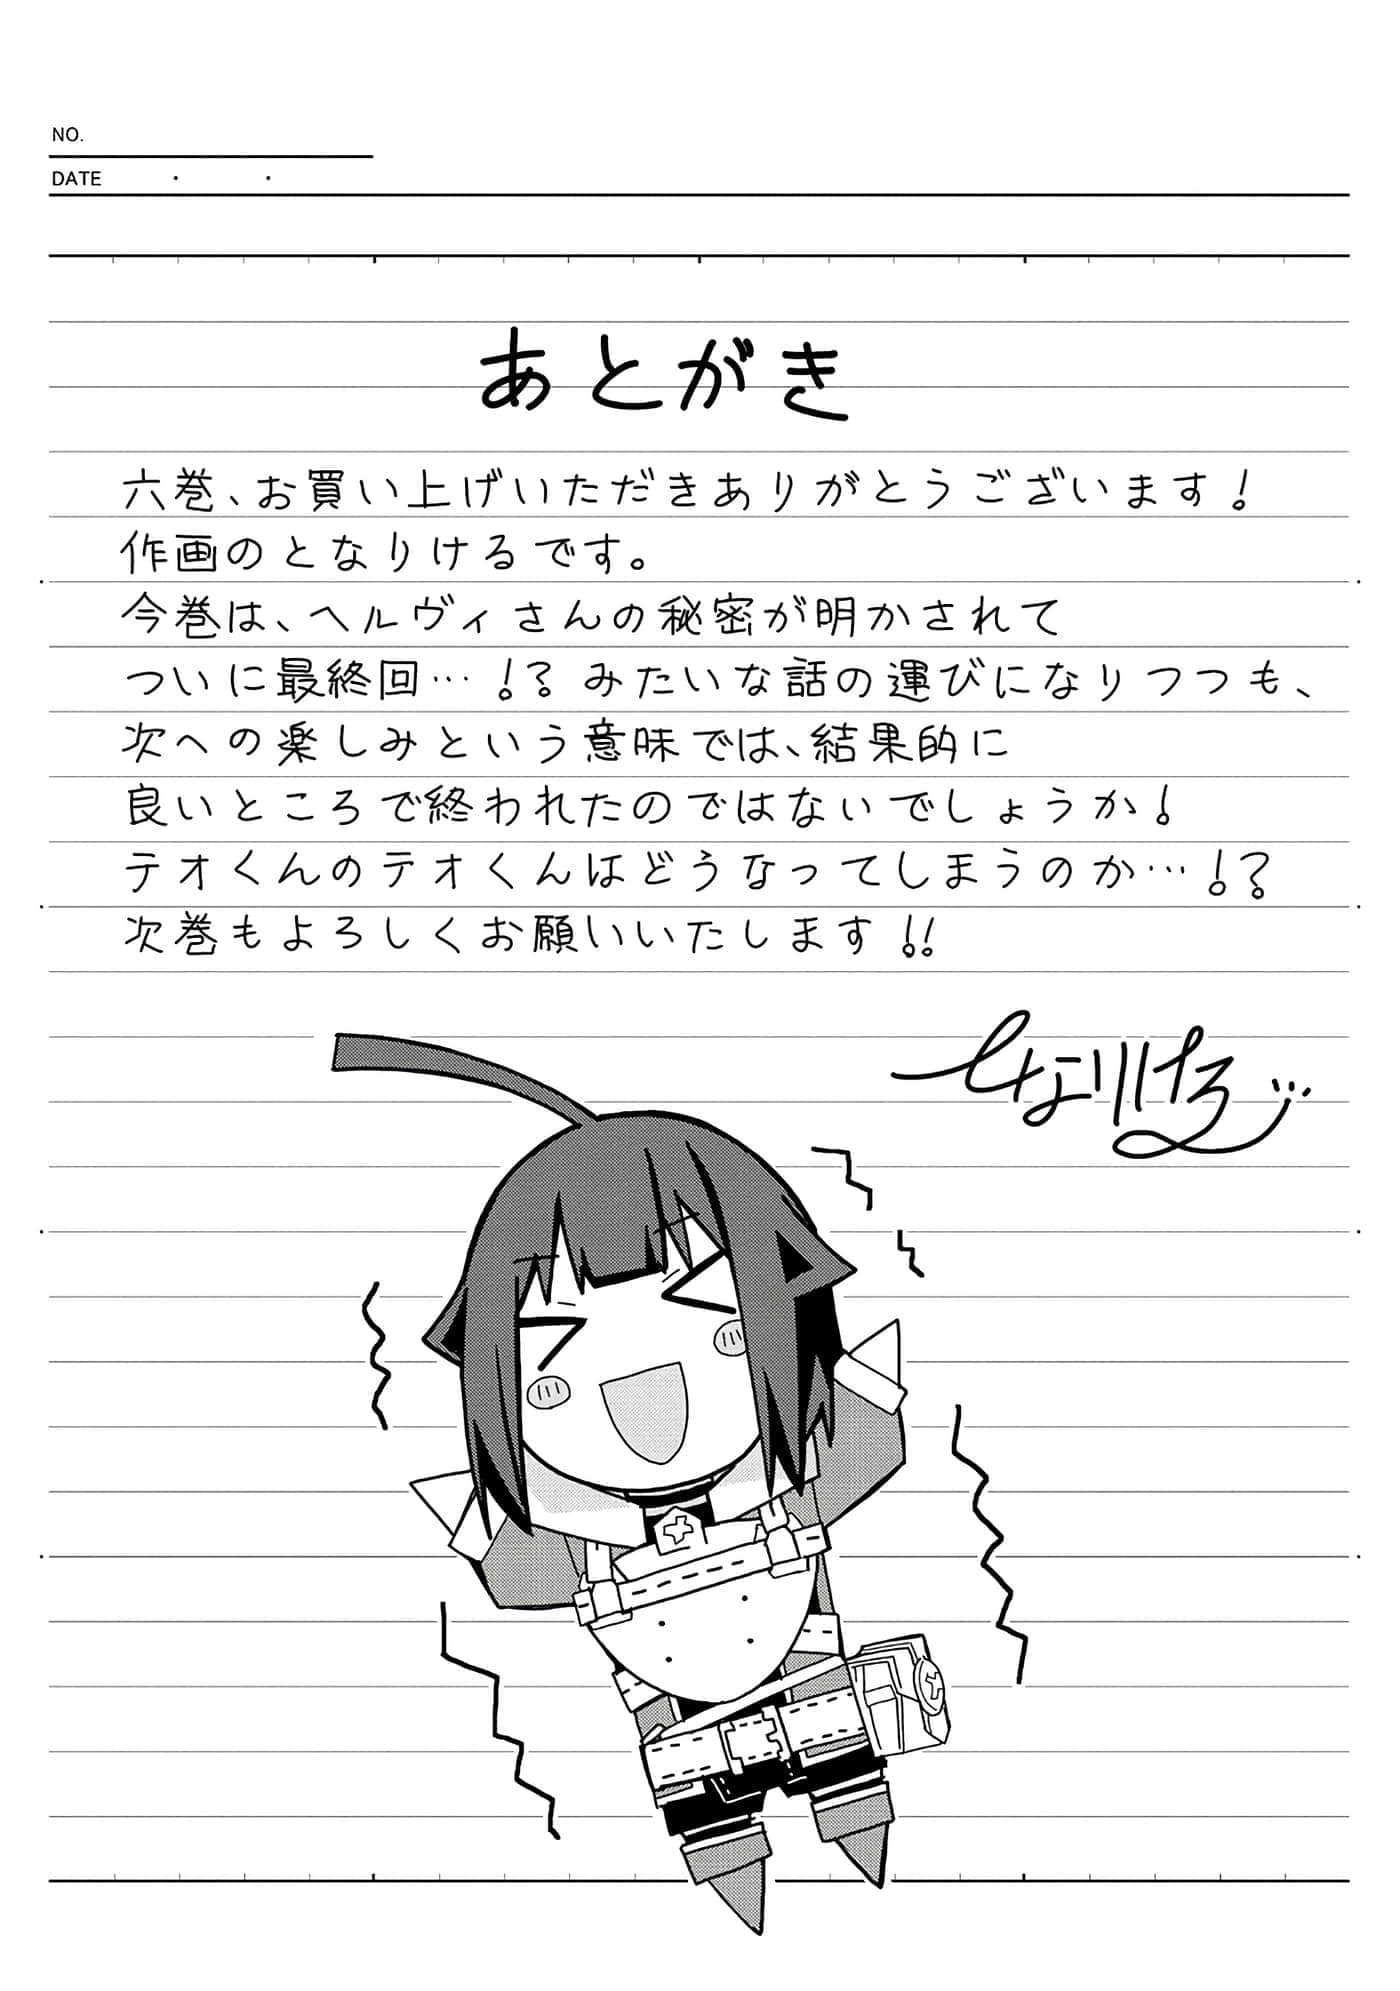 NO.
DATE ・ ・
あとがき
六巻、お買い上げいただきありがとうございます!
作画のとなりけるです。
今巻は、ヘルヴィさんの秘密が明かされて
ついに最終回…!?みたいな話の運びになりつつも、
次への楽しみという意味では、結果的に
良いところで終われたのではないでしょうか!
テオくんのテオくんはどうなってしまうのか…!?
次巻もよろしくお願いいたします!!
となりける